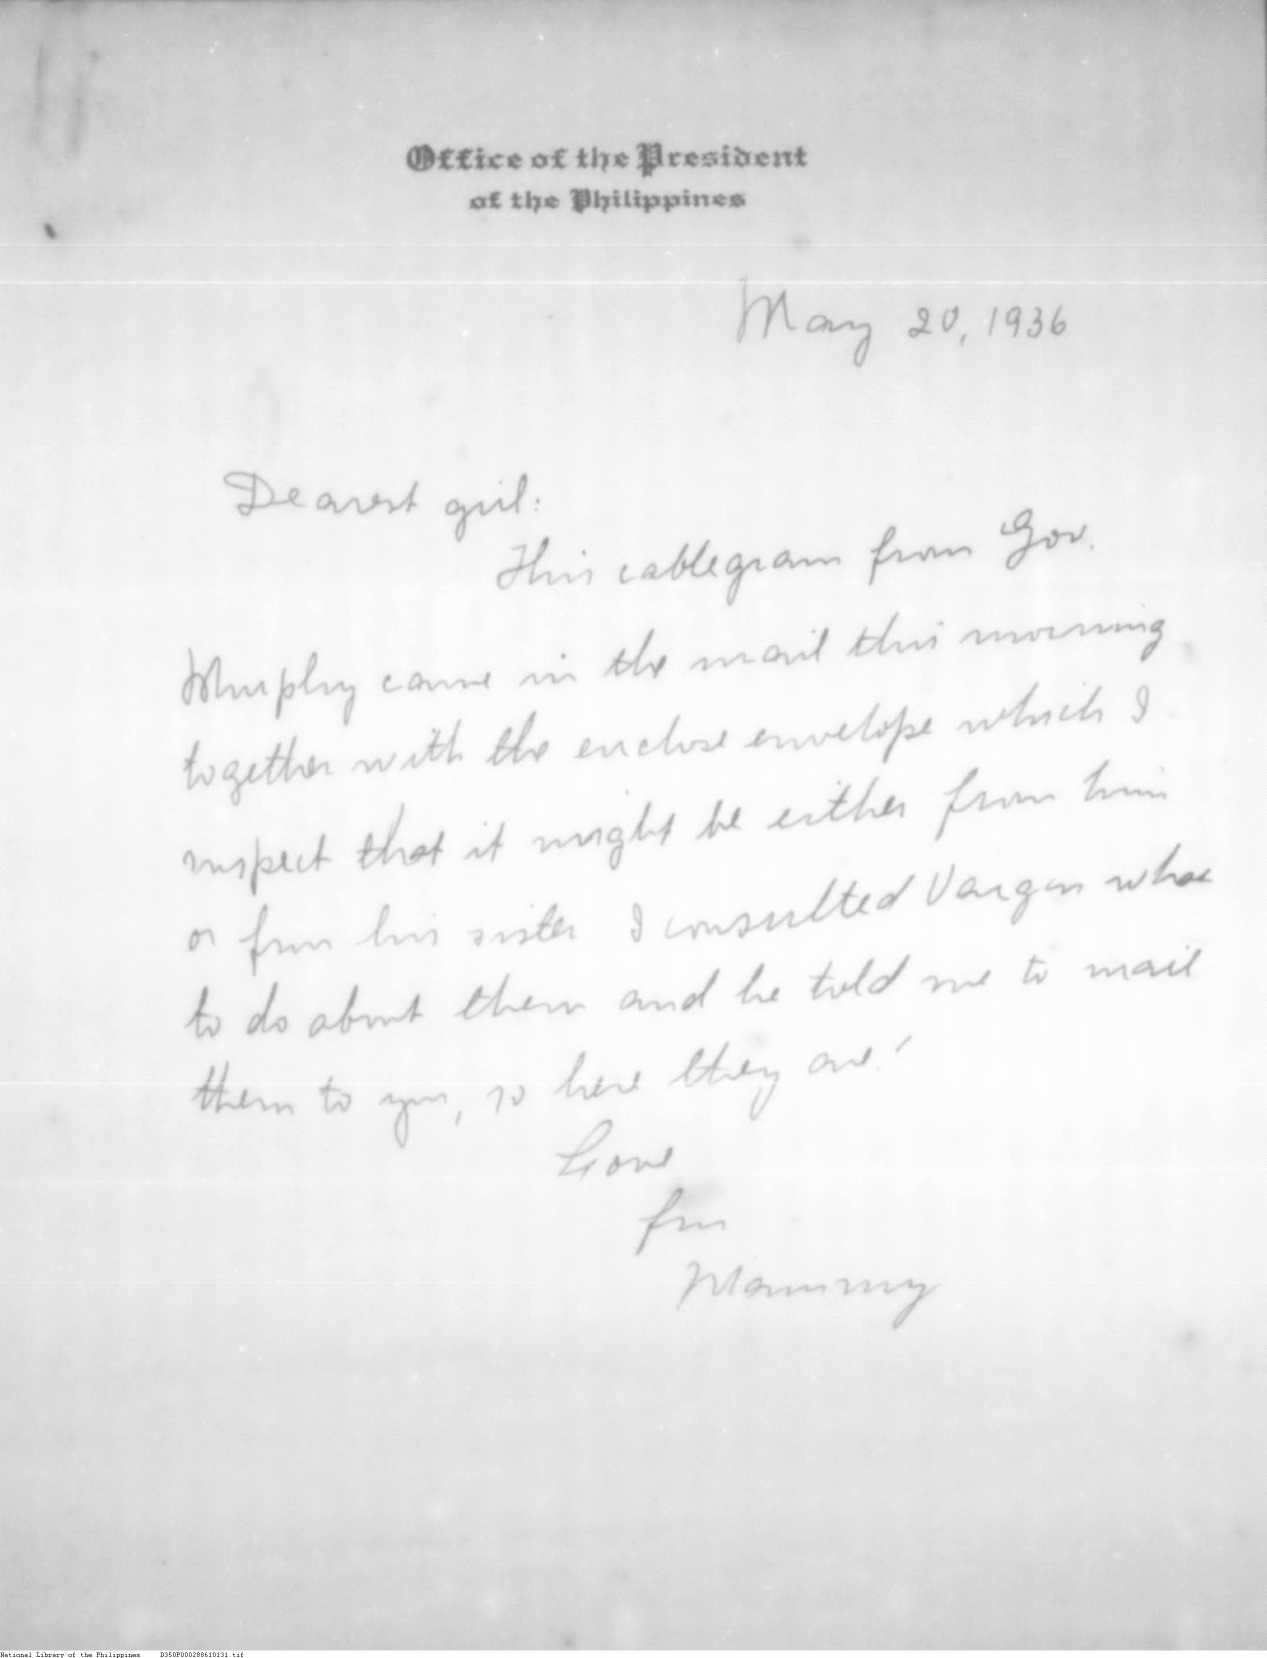 Office of the President
of the Philippines
May 20, 1936
Dearest girl:
This cablegram from Gov.
Murphy came in the mail this morning
together with the enclose envelope which I
suspect that it might be either from him
or from his sister I consulted Vargas what
to do about them and he told me to mail
them to you, so here they are!
Love
from
Mammy
National Library of the Philippines D350P000288610131.tif